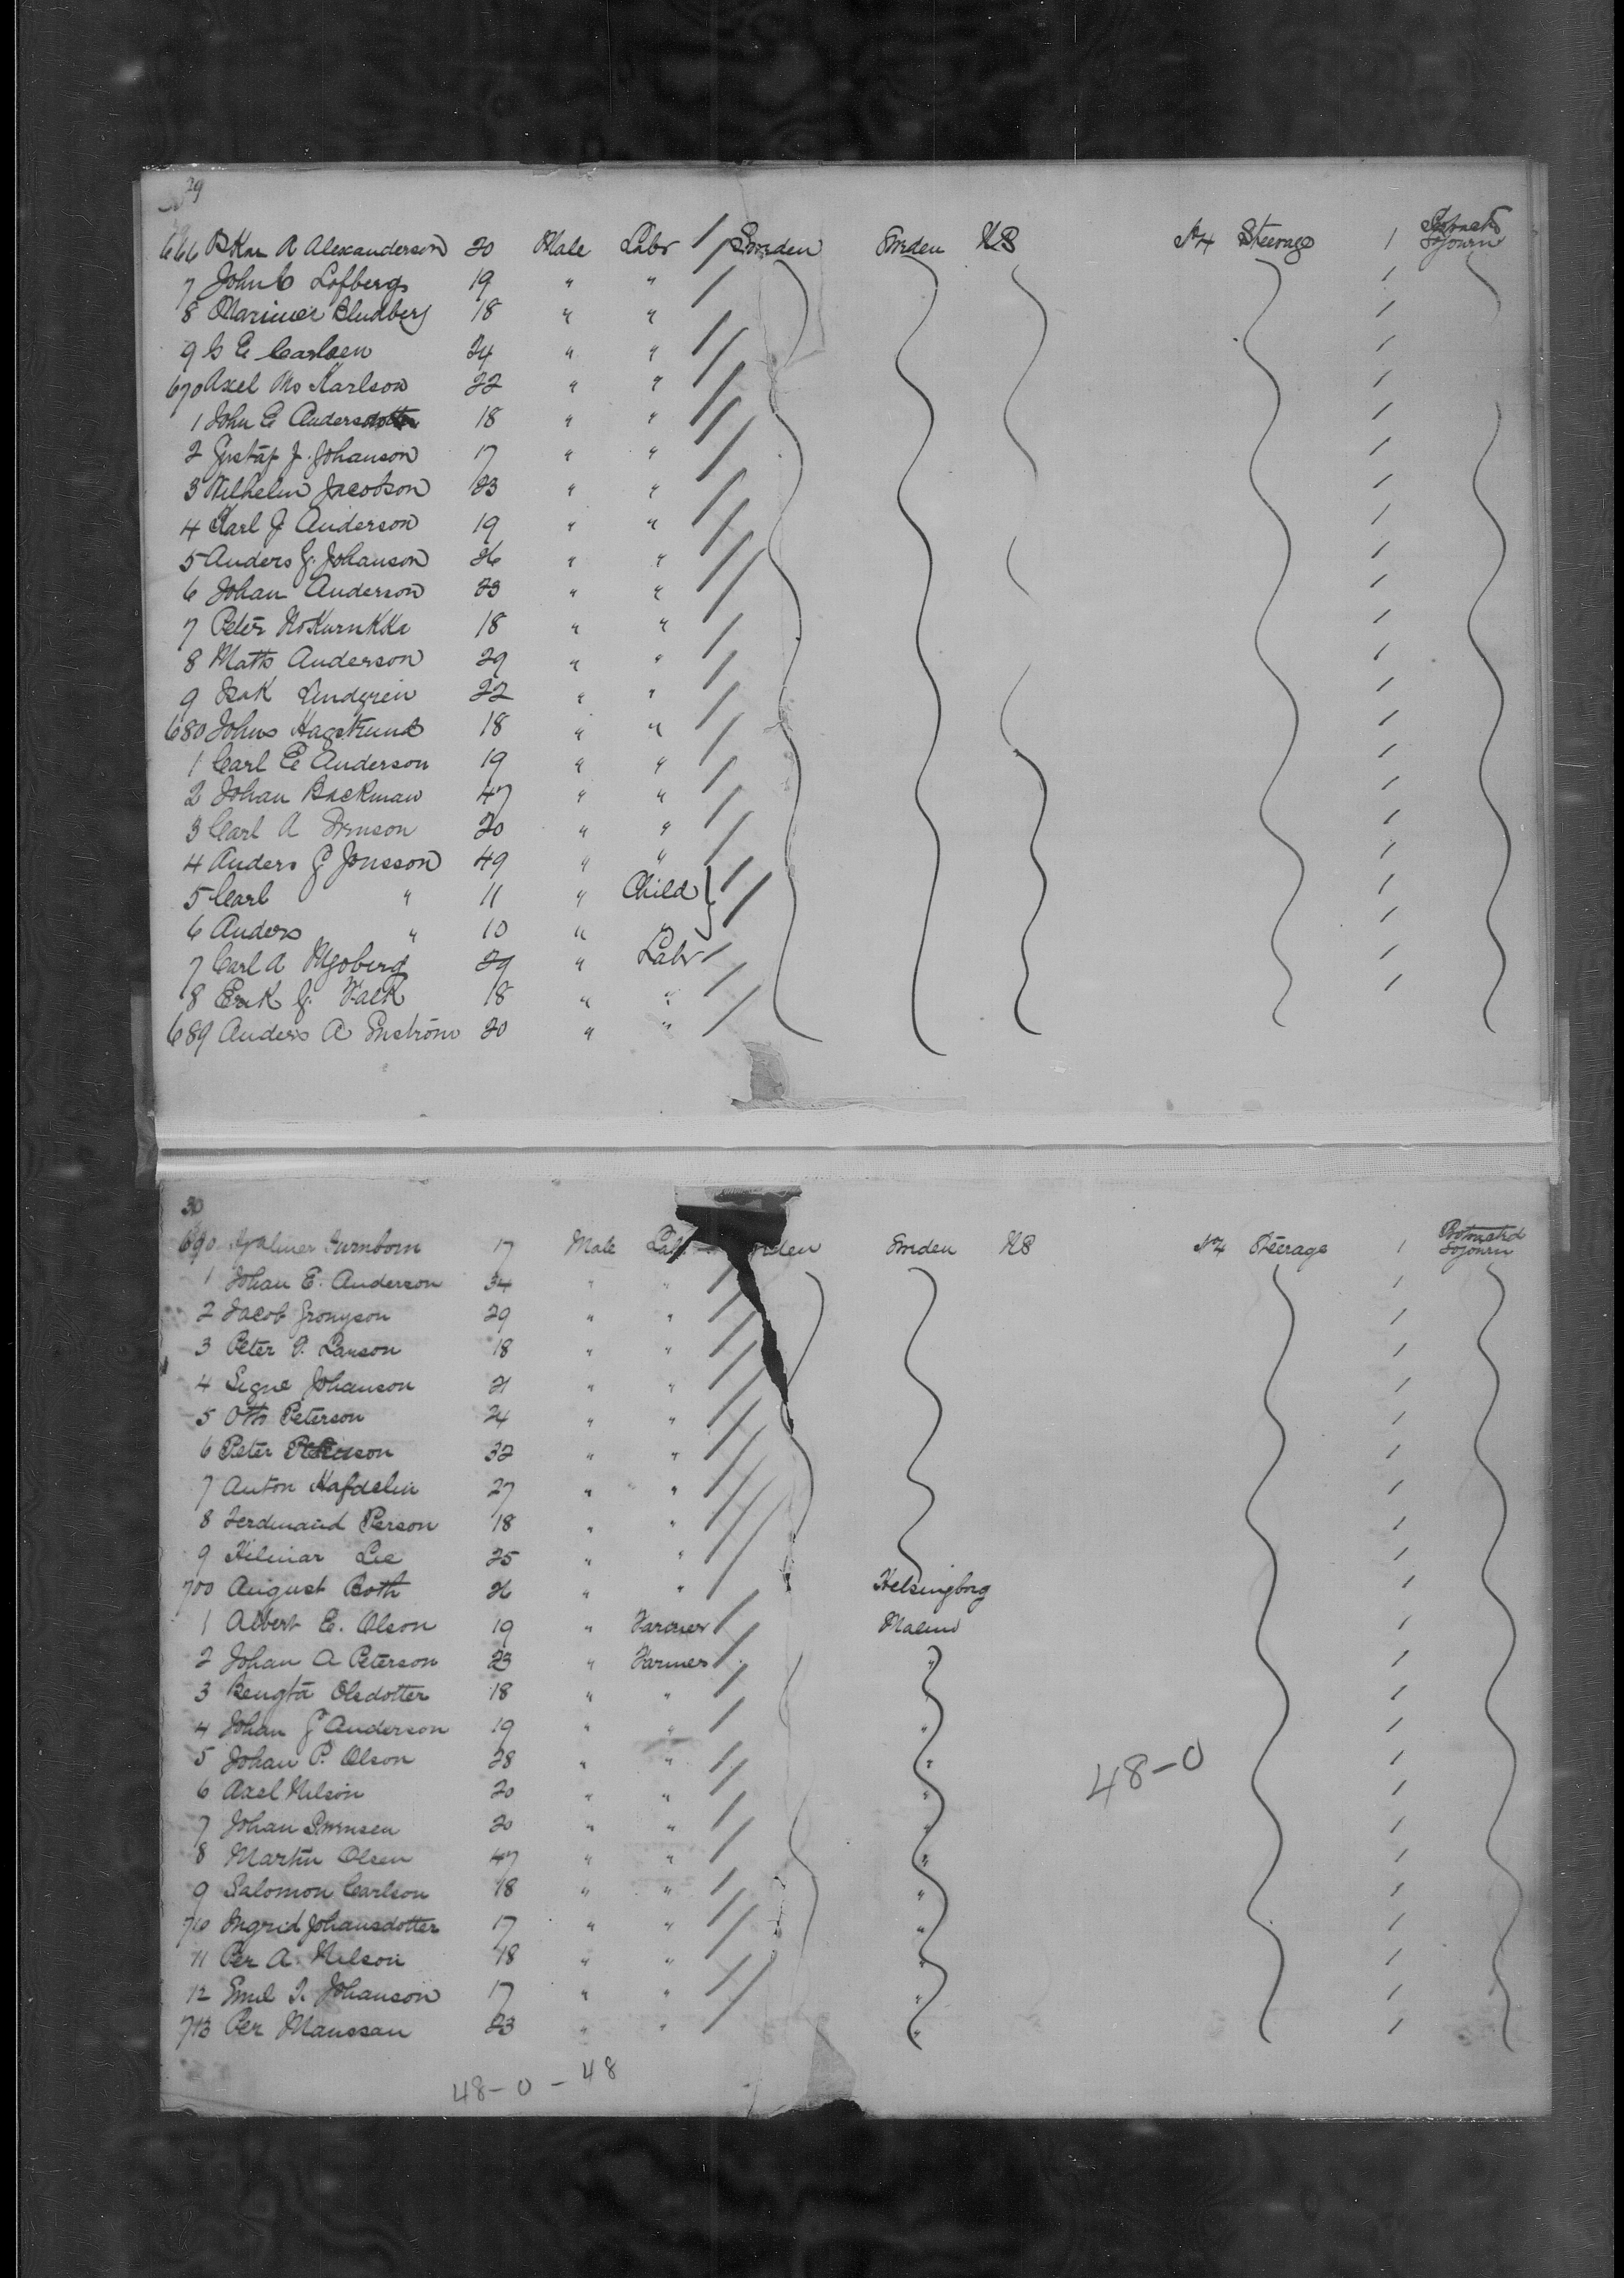 29
666 Oskar A Alexanderson 20 Male Labr Sweden Sweden US NY Steerage 1 Sojourn
7 John C Lofberg 19 " " /
8 Bludberg 18 " " /
9 G E Carlsen 24 " " /
670 Axel Karlson 22 " " /
1 John E Anders 18 " " /
2 Gustaf J. Johanson 17 " " /
3 Wilhelm Jacobson 23 " " /
4 Karl J Anderson 19 " " /
5 Anders G. Johanson 26 " " /
6 Johan Anderson 23 " " /
7 Peter 18 " " /
8 Matts Anderson 29 " " /
9 Isak Lindgren 22 " " /
680 Johns Hagstrund 18 " " /
1 Carl E Anderson 19 " " /
2 Johan Backman 47 " " /
3 Carl A 20 " " /
4 Anders G Jonsson 49 " " /
5 Carl " 11 " Child /
6 Anders " 10 " " /
7 Carl A 29 " Labr /
8 Erik G. Falk 18 " " /
689 Anders A Enström 20 " "
30
690 Hjalmer 17 Male Lab Sweden US NY Steerage 1 Sojourn
1 Johan E. Anderson 34 " " /
2 Jacob 29 " " /
3 Peter P. Larson 18 " " /
4 Signe Johanson 21 " " /
5 Otto Peterson 24 " " /
6 Peter 32 " " /
7 Anton Hafdelin 27 " " /
8 Ferdinand Person 18 " " /
9 Hilmar Lee 25 " " /
700 August Both 26 " " Helsingborg /
1 Albert E. Olson 19 " Farmer Malmo /
2 Johan A Peterson 23 " Farmer " /
3 Bengta Olsdotter 18 " " /
4 Johan G Anderson 19 " " " /
5 Johan P. Olson 28 " " " 48-0 /
6 Axel Nilson 20 " " " /
7 Johan Swensen 20 " " " /
8 Martin Olsen 47 " " " /
9 Salomon Carlson 18 " " " /
710 Ingrid Johansdotter 17 " " " /
11 Per A. Nelson 18 " " " /
12 Emil J. Johanson 17 " " " /
713 Per Manssan 23 " " " /
48-0-48